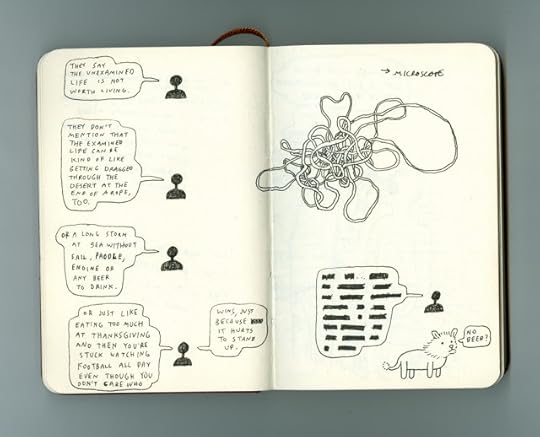 THEY SAY
THE UNEXAMINED
LIFE IS NOT
WORTH LIVING.
THEY DON'T
MENTION THAT
THE EXAMINED
LIFE CAN BE
KIND OF LIKE
GETTING DRAGGED
THROUGH THE
DESERT AT THE
END OF A ROPE,
TOO.
OR A LONG STORM
AT SEA WITHOUT
SAIL, PADDLE,
ENGINE OR
ANY BEER
TO DRINK.
OR JUST LIKE
EATING TOO MUCH
AT THANKSGIVING
AND THEN YOU'RE
STUCK WATCHING
FOOTBALL ALL DAY
EVEN THOUGH YOU
DON'T CARE WHO
WINS, JUST
BECAUSE
IT HURTS
TO STAND
UP.
→ MICROSCOPE
NO
BEER?